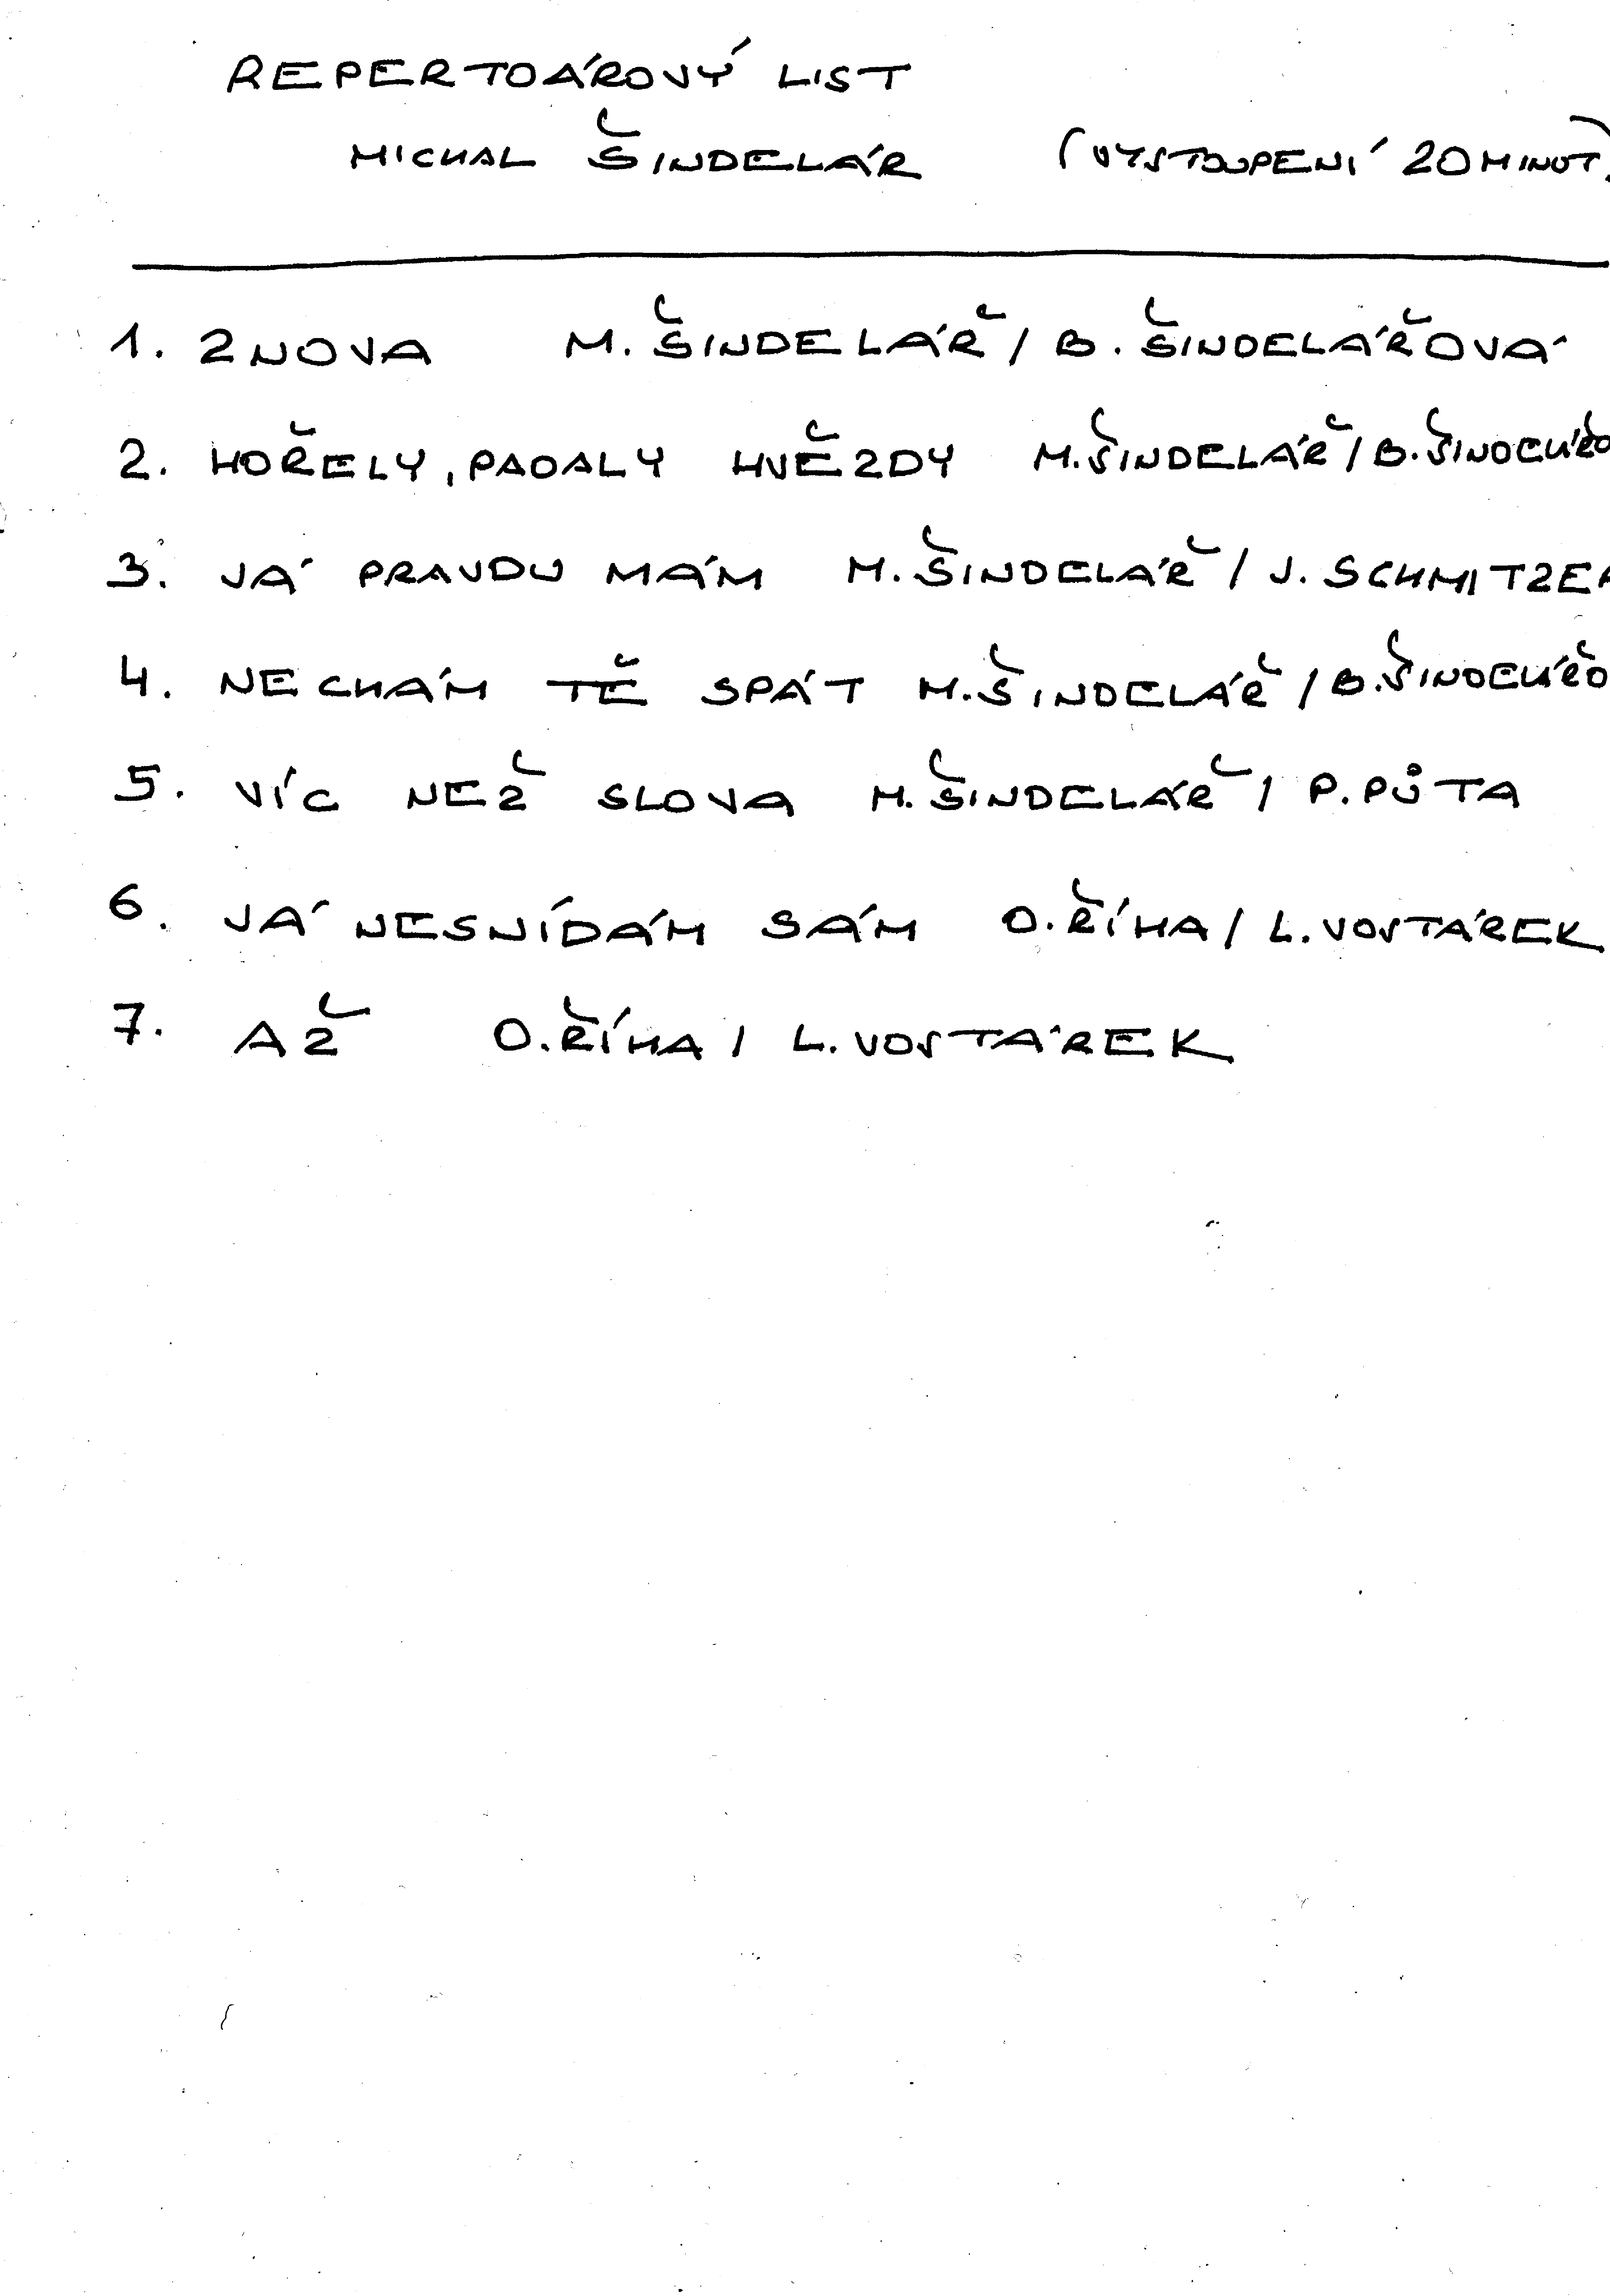 REPERTOÁROVÝ LIST
MICHAL ŠINDELÁR (VYSTOUPENÍ 20 MINUT)
1. ZNOVA M. ŠINDELÁŘ / B. ŠINDELÁŘOVÁ
2. HOŘELY, PADALY HVĚZDY M. ŠINDELÁŘ / B. ŠINDELÁŘO
3. JÁ PRAVDU MÁM M. ŠINDELÁŘ / J. SCHMITZE
4. NECHÁM TĚ SPÁT M. ŠINDELÁŘ / B. ŠINDELÁŘO
5. VÍC NEŽ SLOVA M. ŠINDELÁŘ / P. PŮTA
6. JÁ NESNÍDÁM SÁM O. ŘÍHA / L. VOSTÁREK
7. AŽ O. ŘÍHA / L. VOSTÁREK